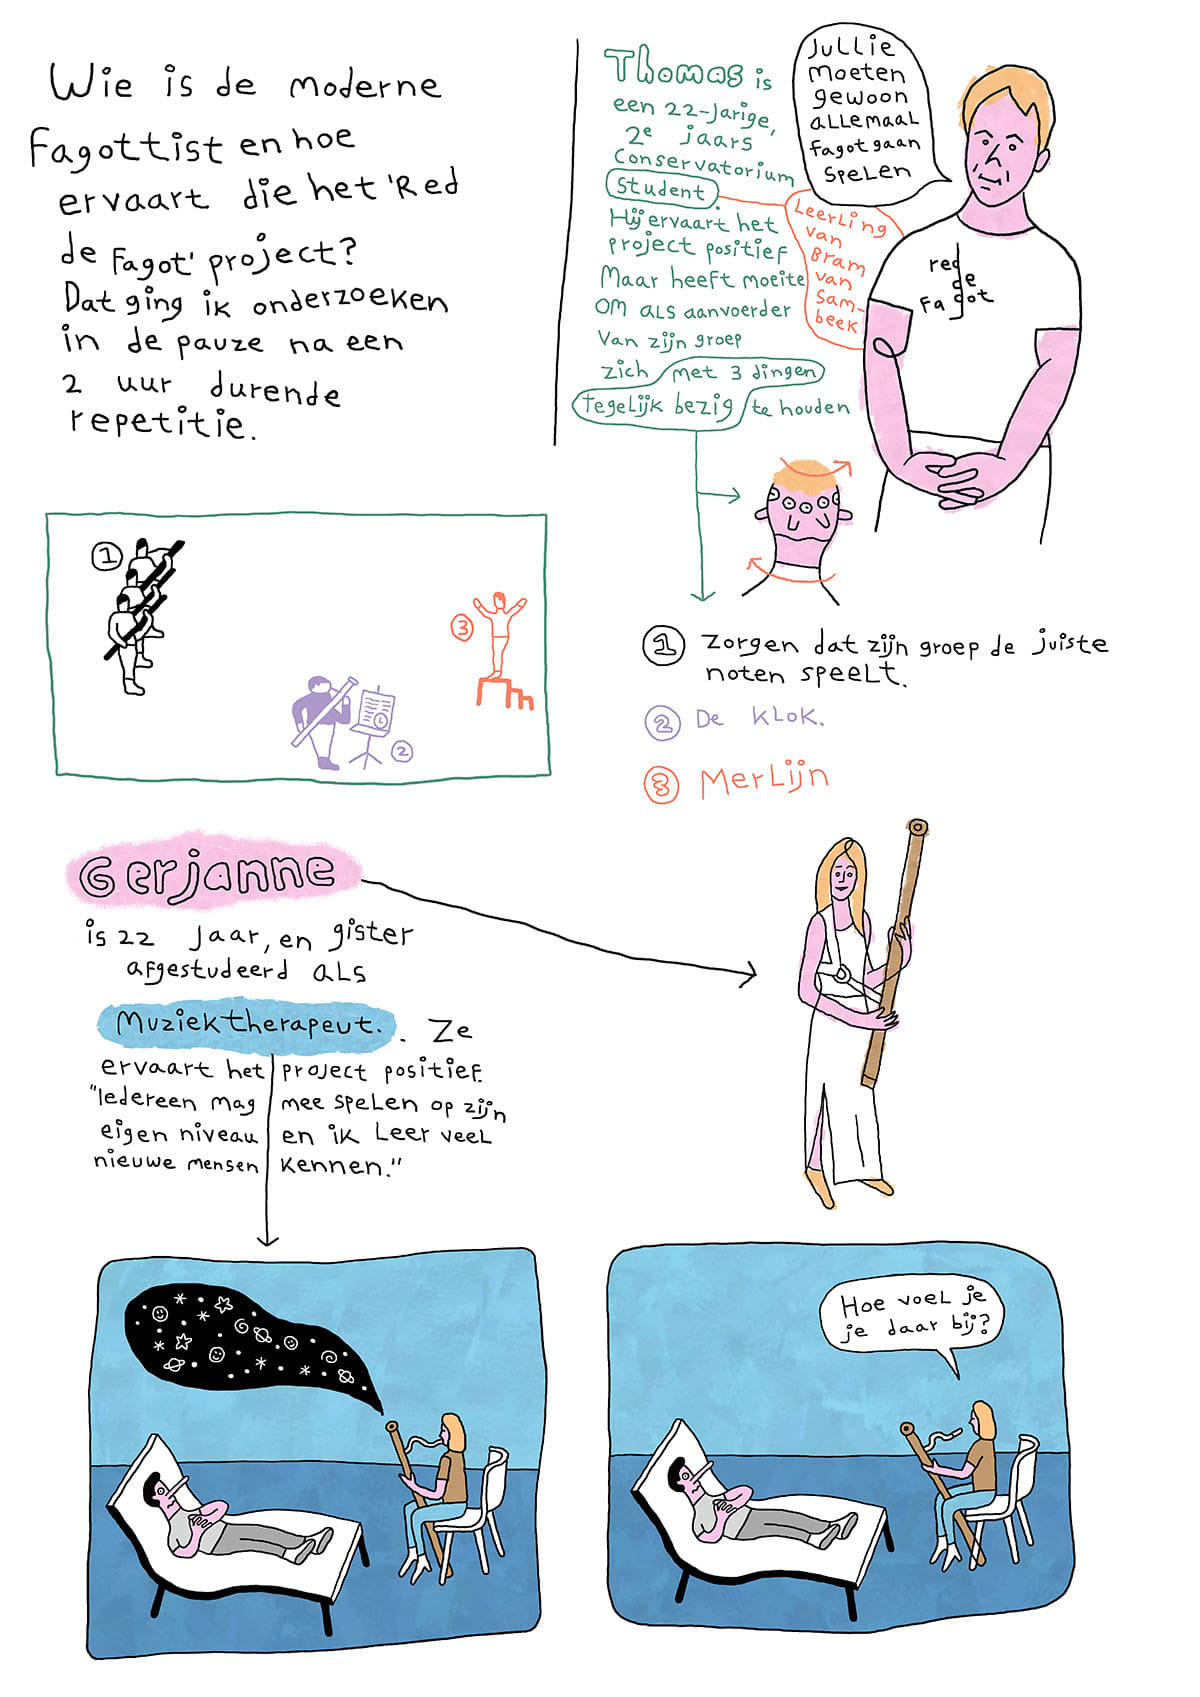 Wie is de moderne
Fagottist en hoe
ervaart die het 'Red
de Fagot' project?
Dat ging ik onderzoeken
in de pauze na een
2 uur durende
repetitie.
Thomas is
een 22-jarige,
2e jaars
Conservatorium
student.
Hij ervaart het
project positief
Maar heeft moeite
om als aanvoerder
van zijn groep
zich met 3 dingen
tegelijk bezig te houden
Jullie
moeten
gewoon
allemaal
fagot gaan
spelen
Leerling
van
Bram
van
Sam-
beek
red
de
Fagot
1
2
3
1 Zorgen dat zijn groep de juiste
noten speelt.
2 De klok.
3 Merlijn
Gerjanne
is 22 jaar, en gister
afgestudeerd als
Muziektherapeut. . Ze
ervaart het project positief.
"Iedereen mag mee spelen op zijn
eigen niveau en ik leer veel
nieuwe mensen kennen."
Hoe voel je
je daar bij?